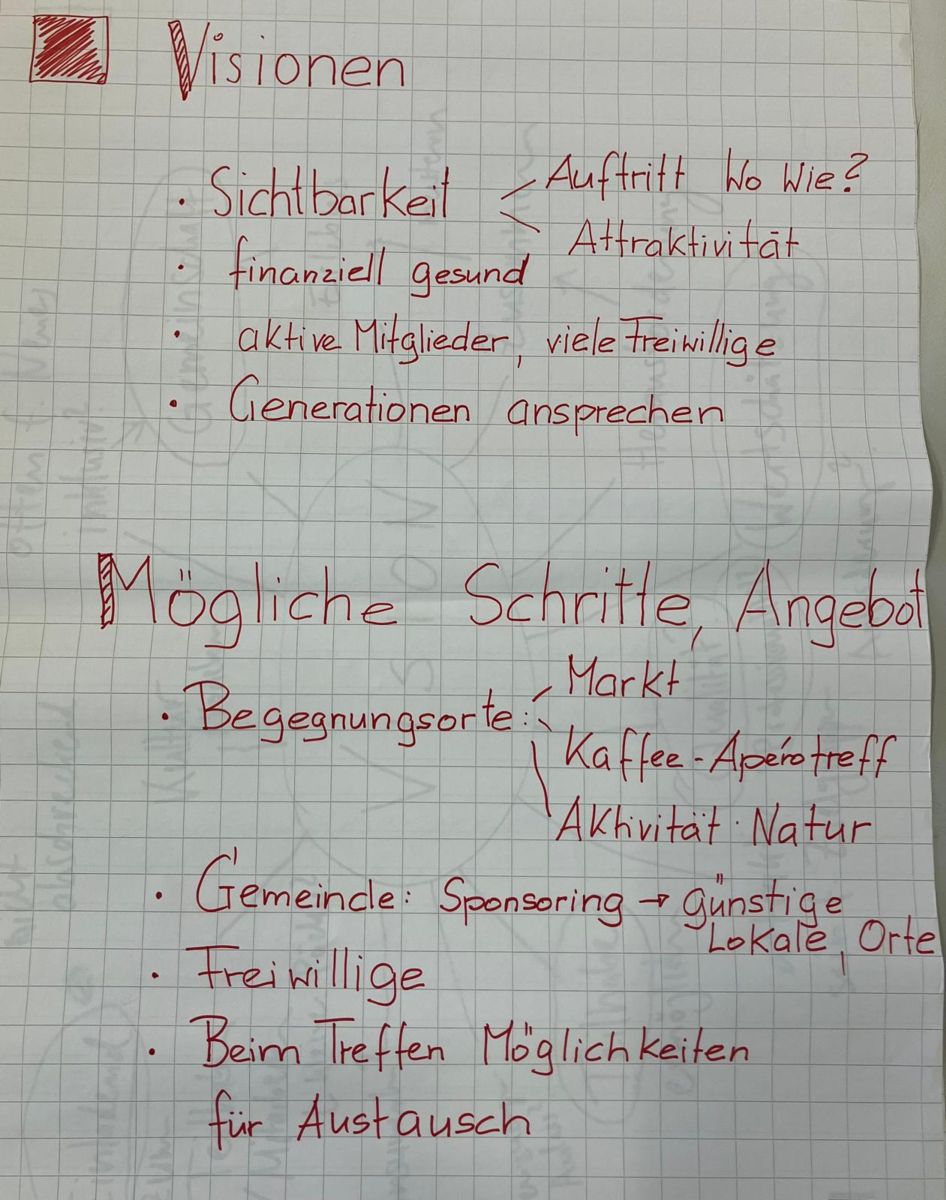 Visionen
• Sichtbarkeit < Auftritt Wo Wie?
Attraktivität
• finanziell gesund
• aktive Mitglieder, viele Freiwillige
• Generationen ansprechen
Mögliche Schritte, Angebot
• Begegnungsorte: Markt
Kaffee-Apérotreff
Aktivität · Natur
• Gemeinde: Sponsoring → günstige
Lokale, Orte
• Freiwillige
• Beim Treffen Möglichkeiten
für Austausch